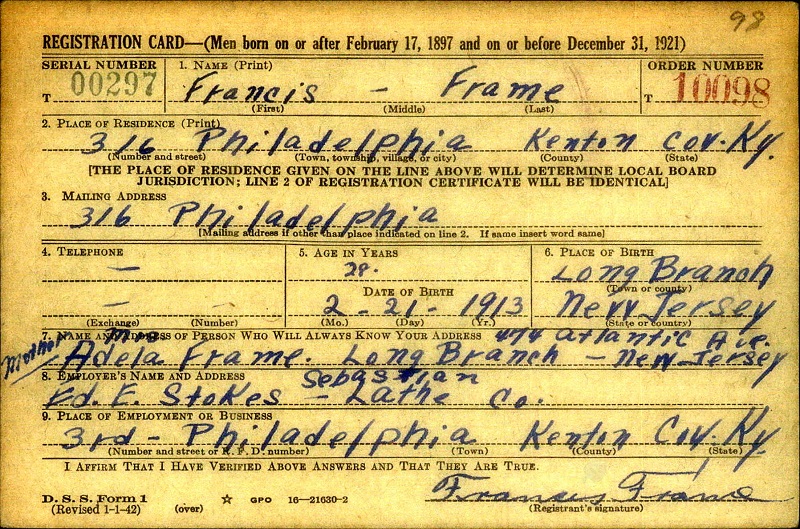 98
REGISTRATION CARD—(Men born on or after February 17, 1897 and on or before December 31, 1921)
SERIAL NUMBER 1. NAME (Print) ORDER NUMBER
T 00297 Francis - Frame T 10098
(First) (Middle) (Last)
2. PLACE OF RESIDENCE (Print)
316 Philadelphia Kenton Cov. Ky.
(Number and street) (Town, township, village, or city) (County) (State)
[THE PLACE OF RESIDENCE GIVEN ON THE LINE ABOVE WILL DETERMINE LOCAL BOARD
JURISDICTION; LINE 2 OF REGISTRATION CERTIFICATE WILL BE IDENTICAL]
3. MAILING ADDRESS
316 Philadelphia
[Mailing address if other than place indicated on line 2. If same insert word same]
4. TELEPHONE 5. AGE IN YEARS 6. PLACE OF BIRTH
— 28. Long Branch
DATE OF BIRTH (Town or county)
— 2 - 21 - 1913 New Jersey
(Exchange) (Number) (Mo.) (Day) (Yr.) (State or country)
7. NAME AND ADDRESS OF PERSON WHO WILL ALWAYS KNOW YOUR ADDRESS 474 Atlantic Ave.
Mother Mrs Adela Frame. Long Branch - New Jersey
8. EMPLOYER'S NAME AND ADDRESS Sebastian
Ed. F. Stokes - Lathe Co.
9. PLACE OF EMPLOYMENT OR BUSINESS
3rd - Philadelphia Kenton Cov. Ky.
(Number and street or R. F. D. number) (Town) (County) (State)
I AFFIRM THAT I HAVE VERIFIED ABOVE ANSWERS AND THAT THEY ARE TRUE.
D. S. S. Form 1 GPO 16—21630-2 Francis Frame
(Revised 1-1-42) (over) (Registrant's signature)